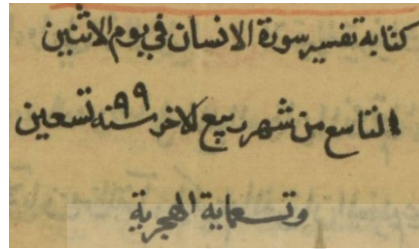 كتابة تفسير سورة الانسان في يوم الاثنين
التاسع من شهر ربيع الاخر سنة ٩٩ تسعين
وتسعماية الهجرية